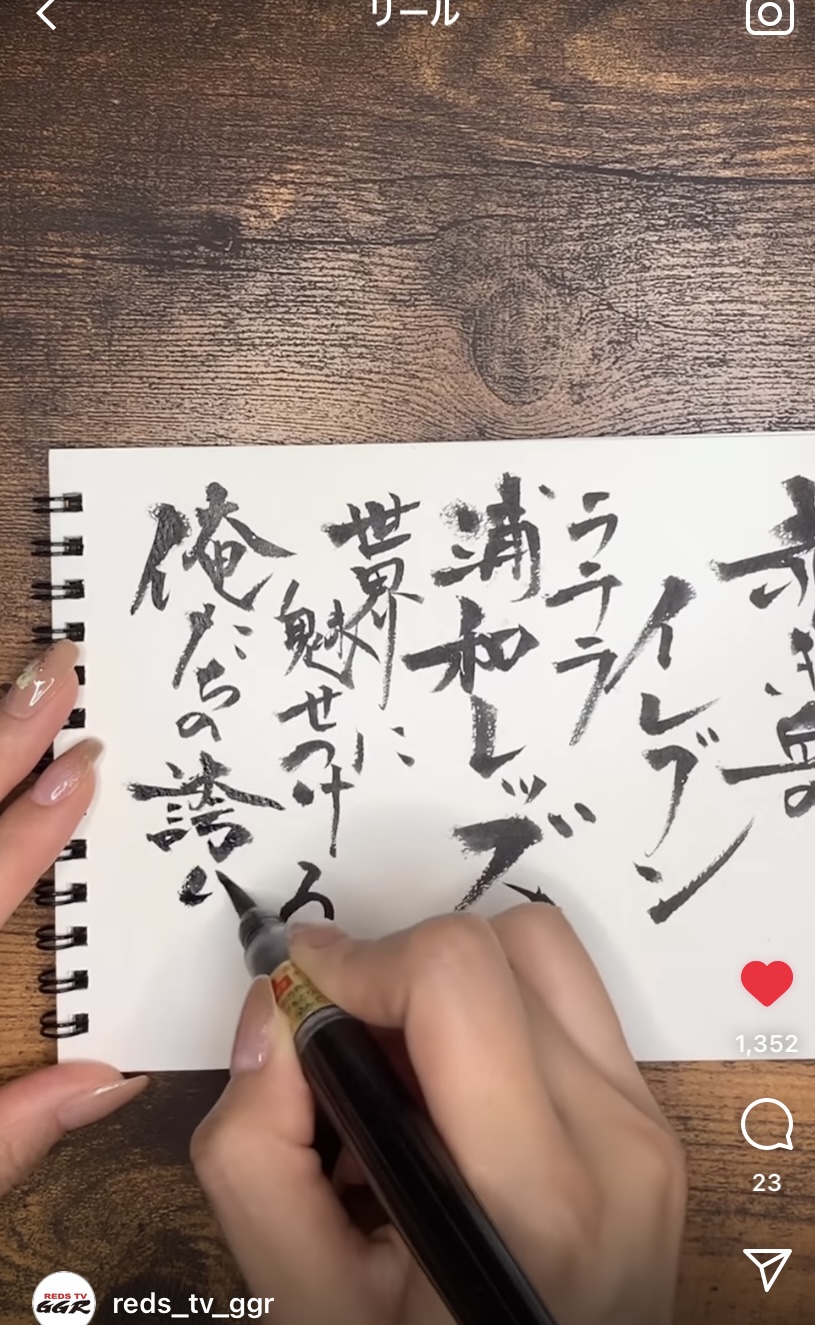 リール
赤き血の
イレブン
ラララ
浦和レッズ
世界に
魅せつけろ
俺たちの誇り
1,352
23
REDS TV
GGR
reds_tv_ggr